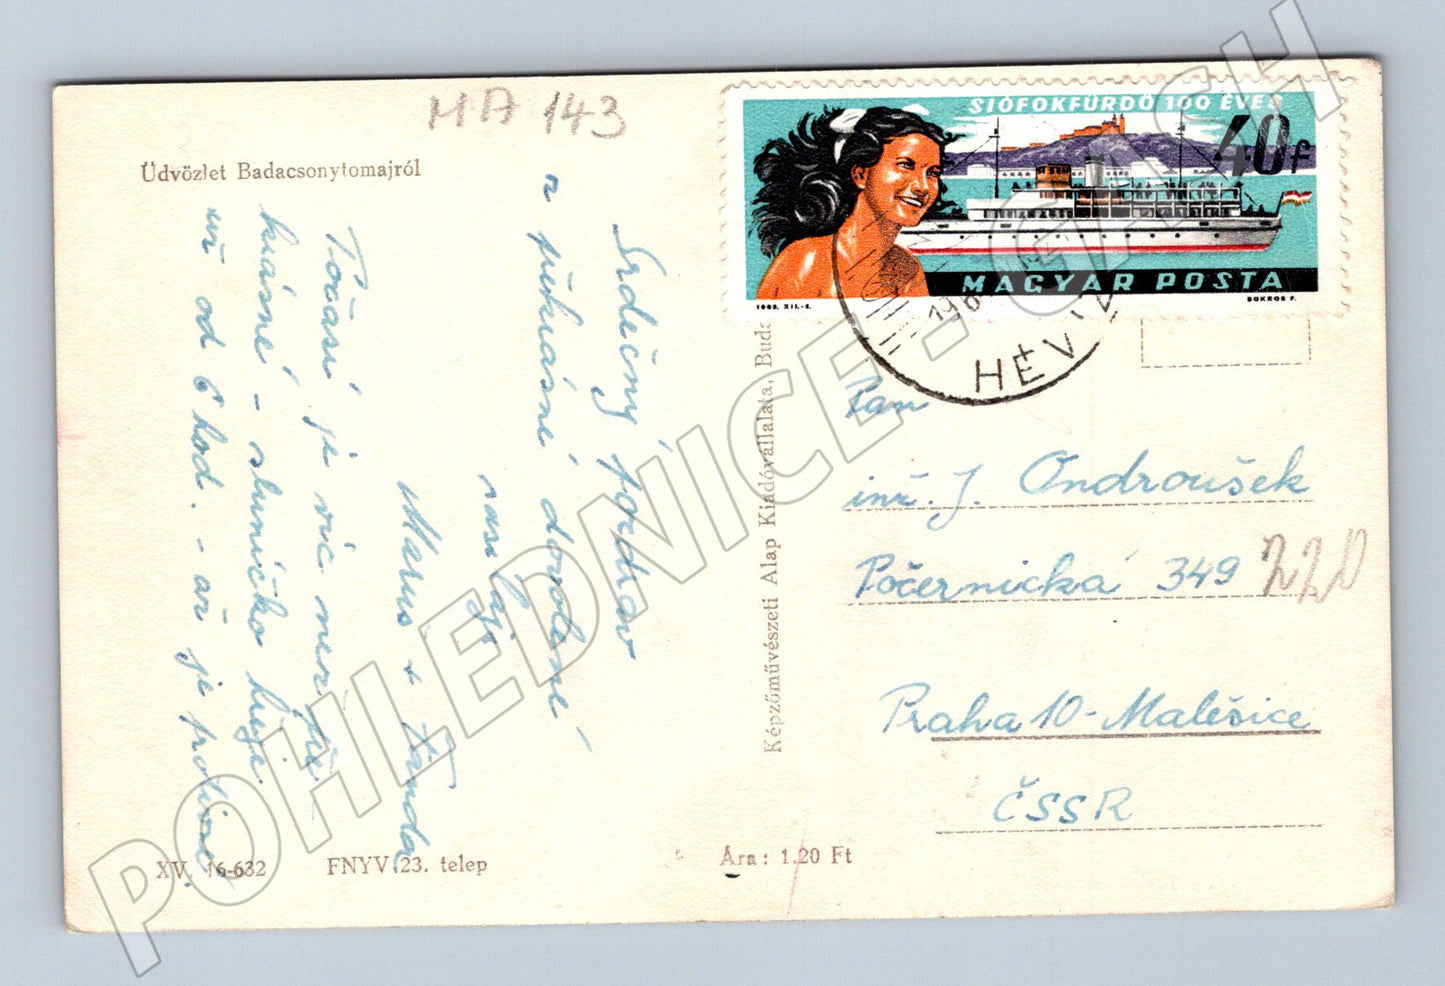 MA 143
Üdvözlet Badacsonytomajról
Srdečný pozdrav
z překrásné dovolené -
vasi
Marus + Franda
Počasí je víc než fajn
krásné - sluníčko hřeje
už od 6 hod. - až je
SIÓFOKFÜRDŐ 100 ÉVES
40f
MAGYAR POSTA
1963. XII.-5.
BOKROS F.
196
HÉVÍZ
Pan
inž. J. Ondroušek
Počernická 349
220
Praha 10 - Malešice
ČSSR
Képzőművészeti Alap Kiadóvállalata, Buda
XV. 16-632
FNYV 23. telep
Ára: 1.20 Ft
POHLEDNICE - CASH